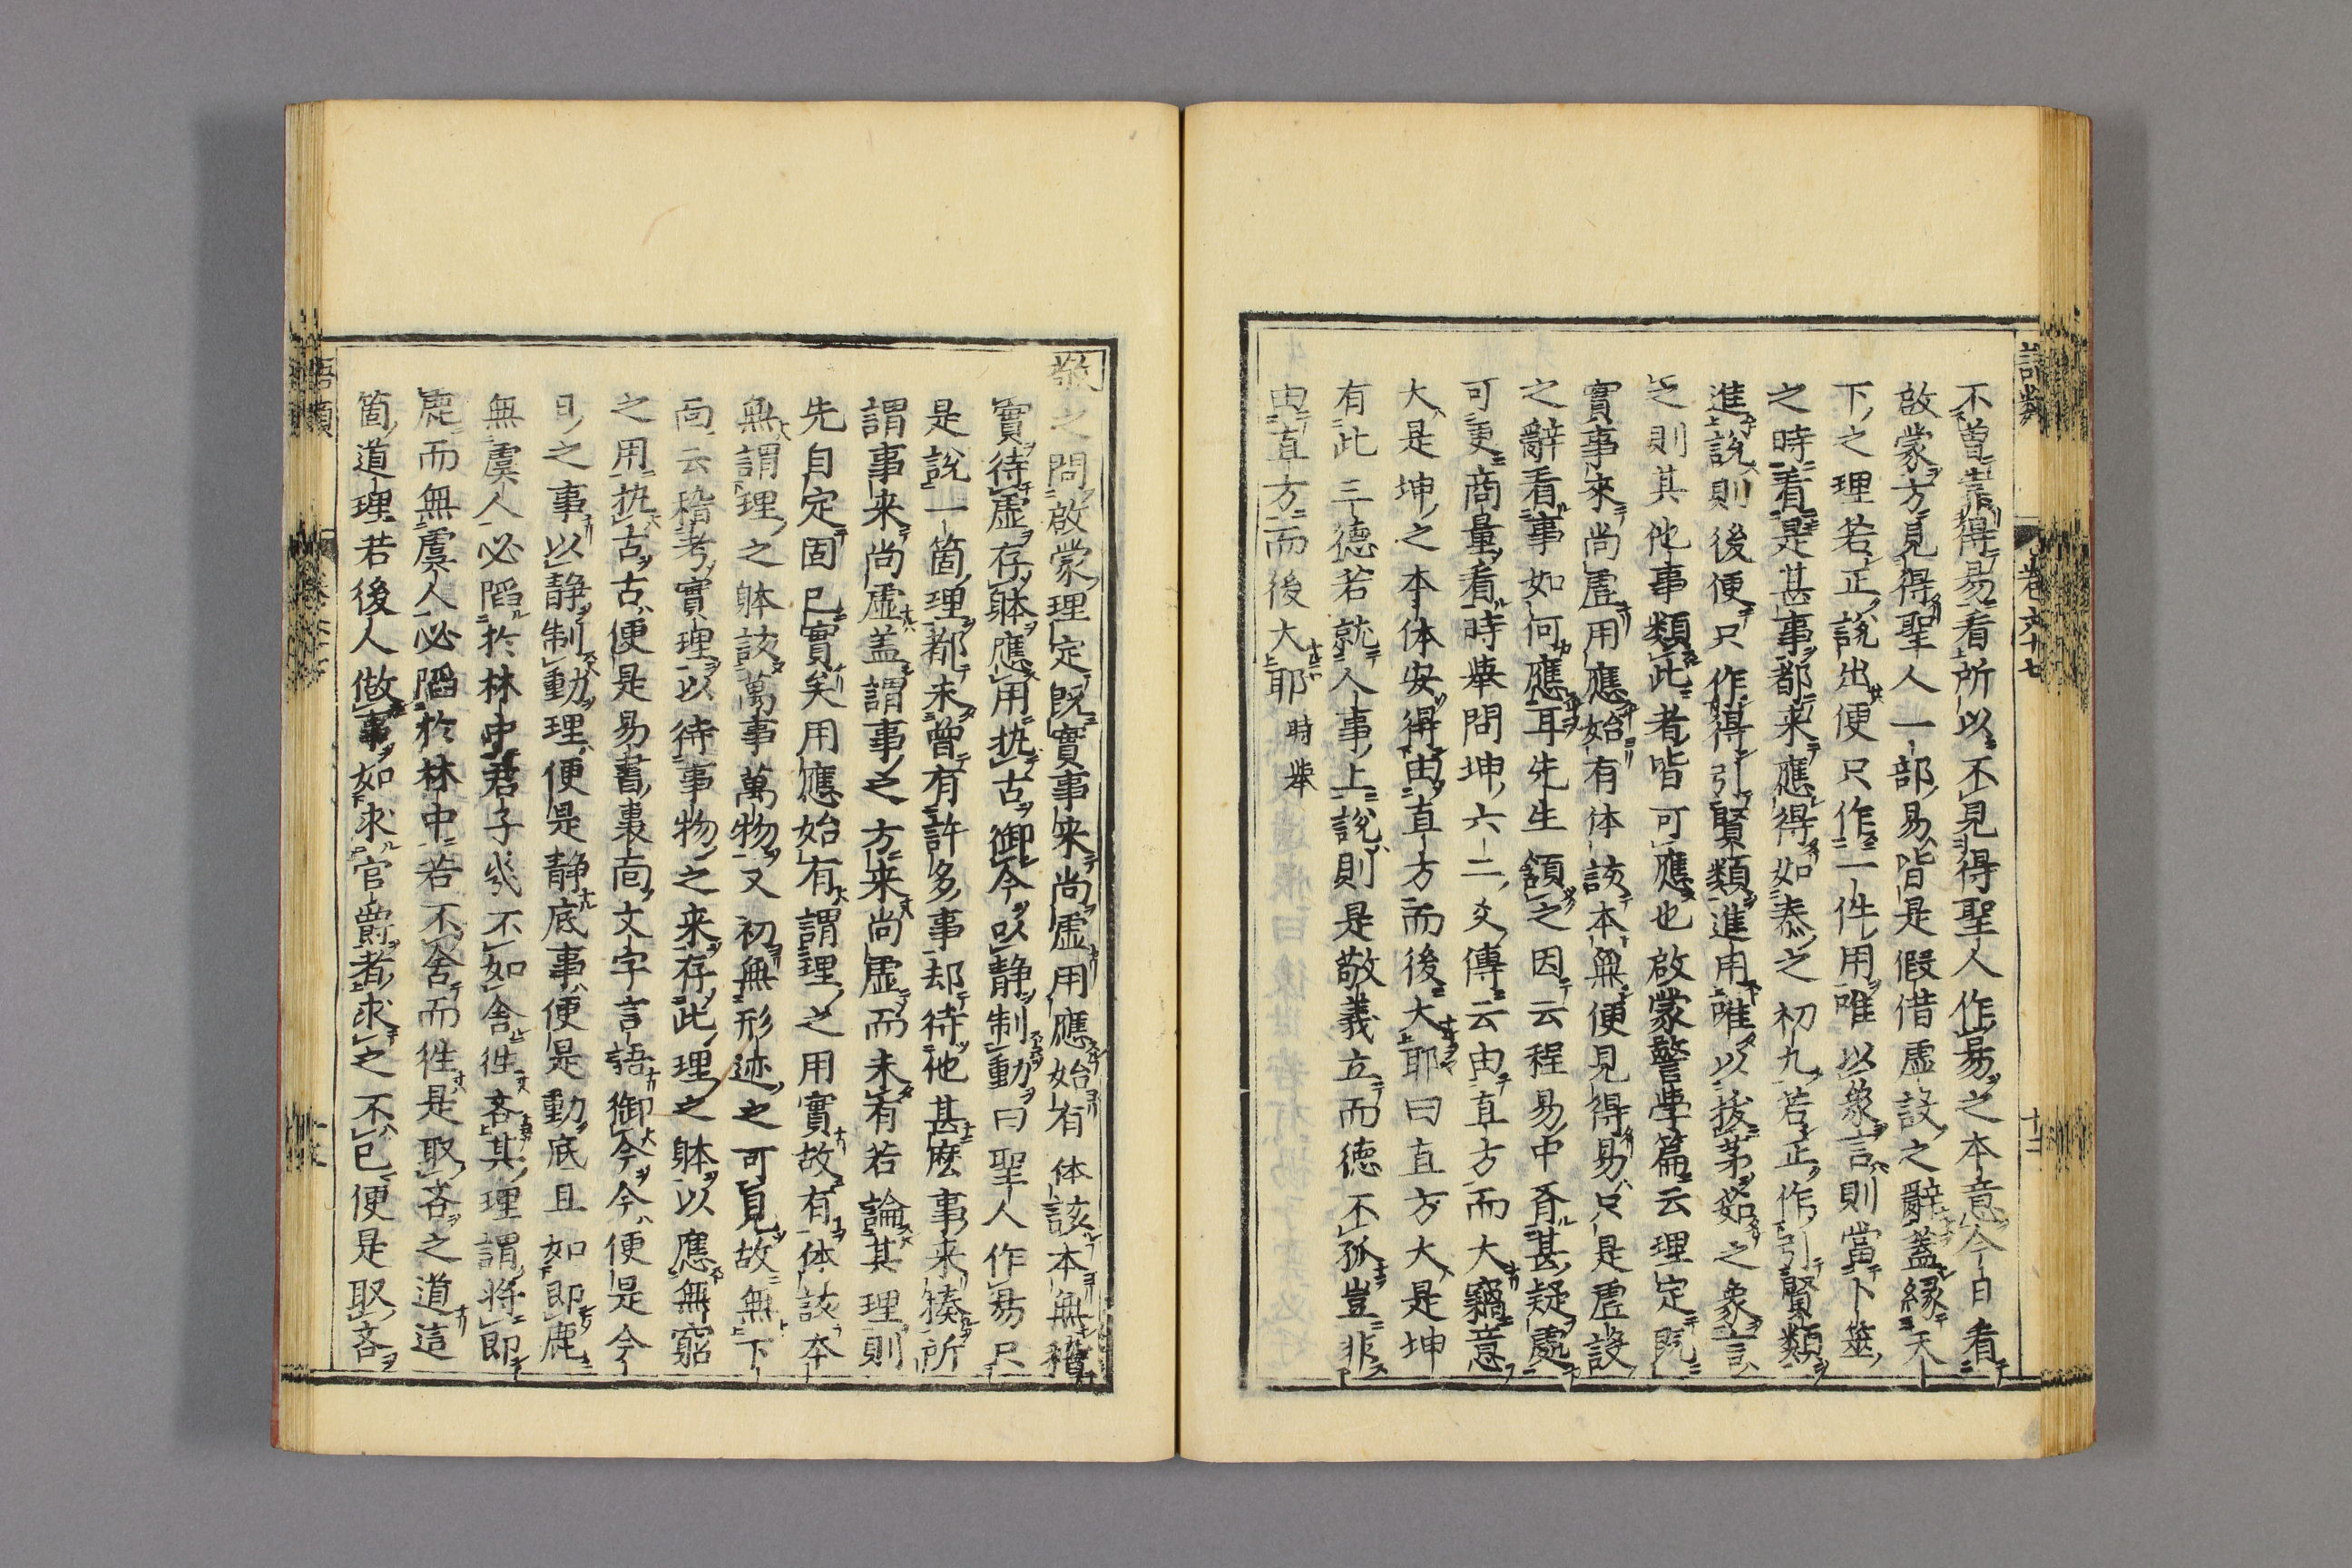 語類
卷六十七
十二
不曽靠得易看所以不見得聖人作易之本意今日看
啟蒙方見得聖人一部易皆是假借虛設之辭蓋緣天
下之理若正說出便只作一件用唯以象言則當卜筮
之時看是甚事都来應得如泰之初九若正作引賢類
進說則後便只作得引賢類進用唯以拔茅茹之象言
之則其他事類此者皆可應也啟蒙警學篇云理定既
實事來尚虛用應始有体該本無便見得易只是虛設
之辭看事如何應耳先生頷之因云程易中有甚疑處
可更商量看時舉問坤六二爻傳云由直方而大竊意
大是坤之本体安得由直方而後大耶曰直方大是坤
有此三德若就人事上說則是敬義立而德不孤豈非
由直方而後大耶 時舉
敬之問啟蒙理定既實事来尚虛用應始有体該本無稽
實待虛存躰應用执古御今以静制動曰聖人作易只
是說一箇理都未曾有許多事却待他甚麽事来揍所
謂事来尚虛盖謂事之方来尚虛而未有若論其理則
先自定固已實矣用應始有謂理之用實故有体該本
無謂理之躰該萬事萬物又初無形迹之可見故無下
面云稽考實理以待事物之来存此理之躰以應無窮
之用执古古便是易書裏面文字言語御今今便是今
日之事以静制動理便是静底事便是動底且如即鹿
無虞人必䧟於林中君子幾不如舍徃吝其理謂將即
鹿而無虞人必䧟於林中若不舍而徃是取吝之道這
箇道理若後人做事如求官爵者求之不已便是取吝
語類